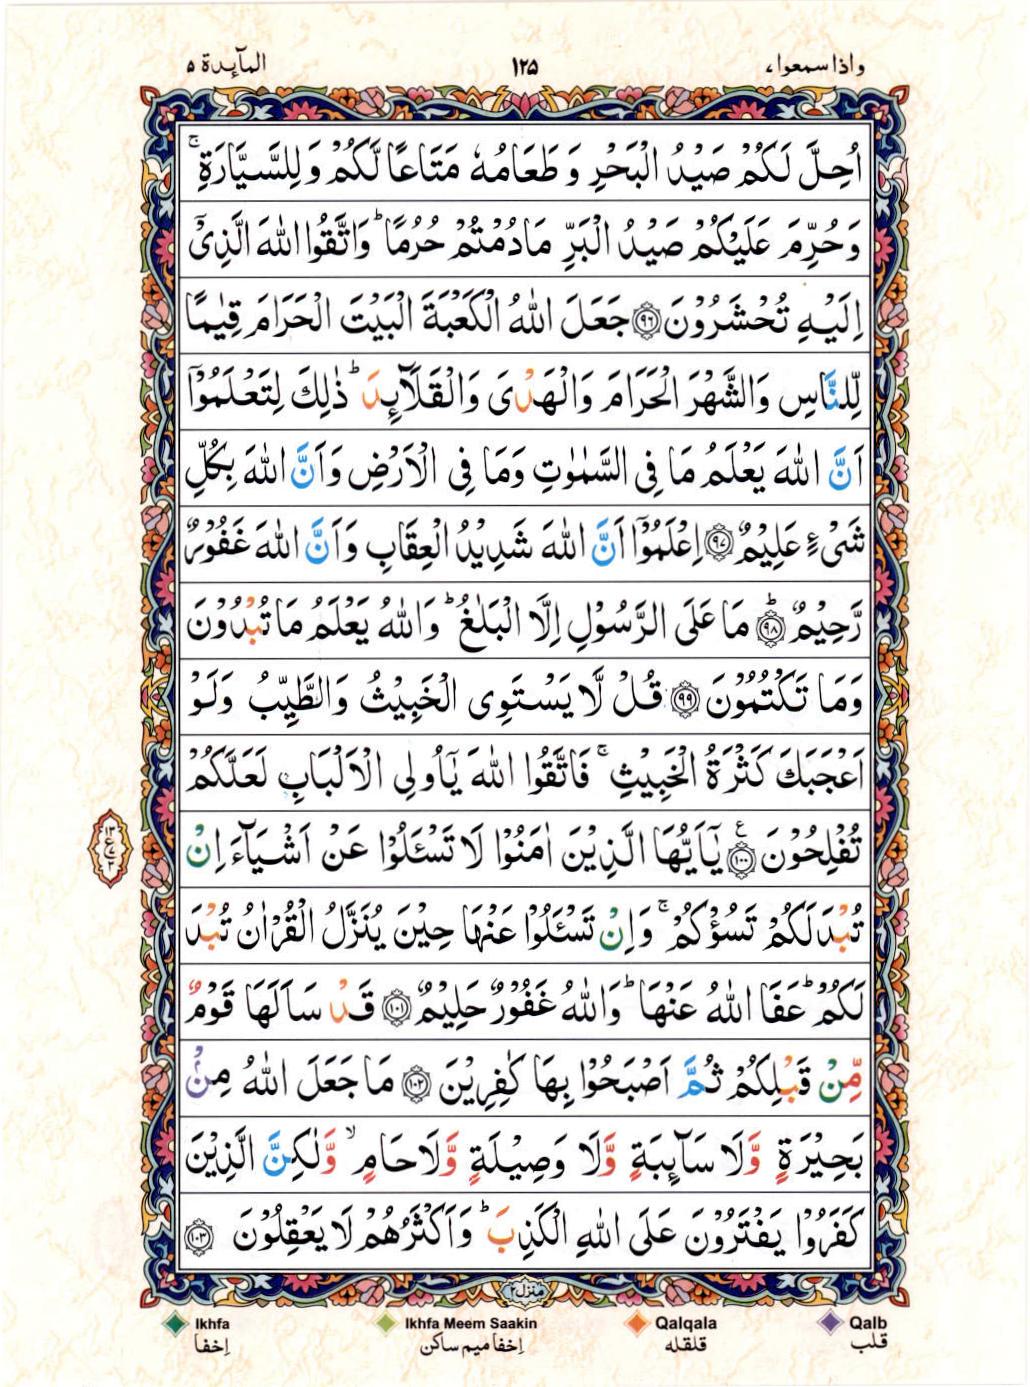 المآئدة ۵
۱۲۵
واذاسمعوا،
اُحِلَّ لَكُمْ صَيْدُ الْبَحْرِ وَ طَعَامُهٗ مَتَاعًا لَّكُمْ وَ لِلسَّيَّارَةِ ۚ
وَ حُرِّمَ عَلَيْكُمْ صَيْدُ الْبَرِّ مَادُمْتُمْ حُرُمًا ؕ وَاتَّقُوا اللّٰهَ الَّذِیْۤ
اِلَيْهِ تُحْشَرُوْنَ ۝۹۶ جَعَلَ اللّٰهُ الْكَعْبَةَ الْبَيْتَ الْحَرَامَ قِيٰمًا
لِّلنَّاسِ وَالشَّهْرَ الْحَرَامَ وَالْهَدْیَ وَالْقَلَآئِدَ ؕ ذٰلِكَ لِتَعْلَمُوْۤا
اَنَّ اللّٰهَ يَعْلَمُ مَا فِی السَّمٰوٰتِ وَمَا فِی الْاَرْضِ وَاَنَّ اللّٰهَ بِكُلِّ
شَیْءٍ عَلِيْمٌ ۝۹۷ اِعْلَمُوْۤا اَنَّ اللّٰهَ شَدِيْدُ الْعِقَابِ وَاَنَّ اللّٰهَ غَفُوْرٌ
رَّحِيْمٌ ۝۹۸ؕ مَا عَلَی الرَّسُوْلِ اِلَّا الْبَلٰغُ ؕ وَاللّٰهُ يَعْلَمُ مَا تُبْدُوْنَ
وَمَا تَكْتُمُوْنَ ۝۹۹ قُلْ لَّا يَسْتَوِی الْخَبِيْثُ وَالطَّيِّبُ وَلَوْ
اَعْجَبَكَ كَثْرَةُ الْخَبِيْثِ ۚ فَاتَّقُوا اللّٰهَ يٰۤاُولِی الْاَلْبَابِ لَعَلَّكُمْ
تُفْلِحُوْنَ ۝۱۰۰ۧ يٰۤاَيُّهَا الَّذِيْنَ اٰمَنُوْا لَا تَسْـَٔلُوْا عَنْ اَشْيَآءَ اِنْ
تُبْدَ لَكُمْ تَسُؤْكُمْ ۚ وَاِنْ تَسْـَٔلُوْا عَنْهَا حِيْنَ يُنَزَّلُ الْقُرْاٰنُ تُبْدَ
لَكُمْ ؕ عَفَا اللّٰهُ عَنْهَا ؕ وَاللّٰهُ غَفُوْرٌ حَلِيْمٌ ۝۱۰۱ قَدْ سَاَلَهَا قَوْمٌ
مِّنْ قَبْلِكُمْ ثُمَّ اَصْبَحُوْا بِهَا كٰفِرِيْنَ ۝۱۰۲ مَا جَعَلَ اللّٰهُ مِنْۢ
بَحِيْرَةٍ وَّلَا سَآئِبَةٍ وَّلَا وَصِيْلَةٍ وَّلَا حَامٍ ۙ وَّلٰكِنَّ الَّذِيْنَ
كَفَرُوْا يَفْتَرُوْنَ عَلَی اللّٰهِ الْكَذِبَ ؕ وَاَكْثَرُهُمْ لَا يَعْقِلُوْنَ ۝۱۰۳
منزل۲
Ikhfa
Ikhfa Meem Saakin
Qalqala
Qalb
اِخفا
اِخفا میم ساکن
قلقله
قلب